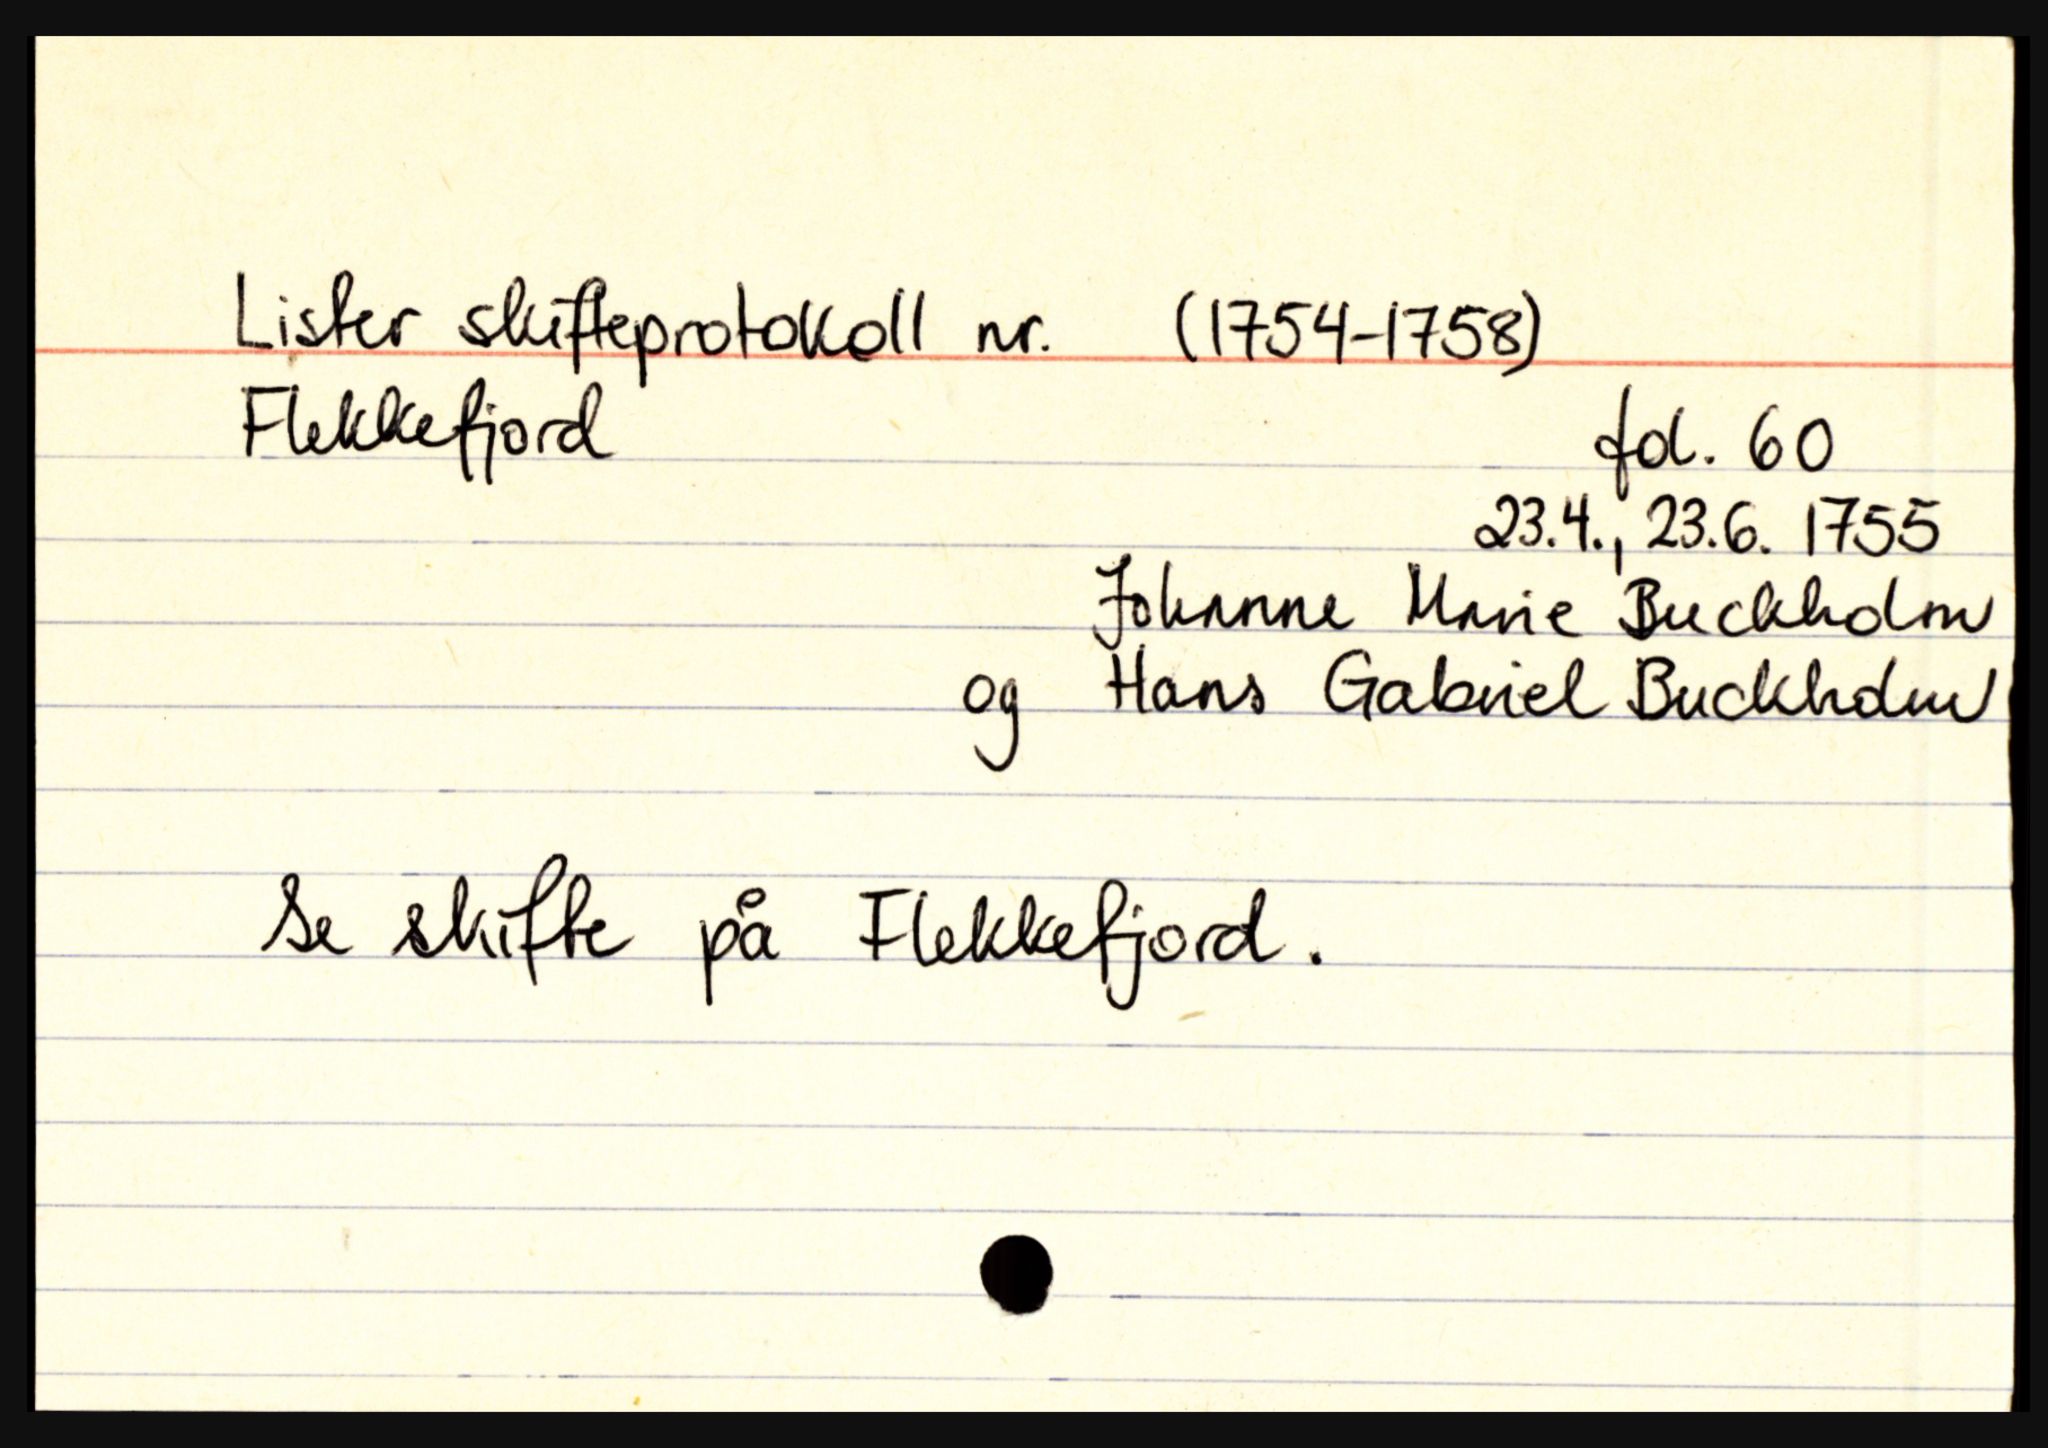 Lister skifteprotokoll nr. (1754-1758)
Flekkefjord
fol. 60
23.4., 23.6. 1755
Johanne Marie Buckholm
og Hans Gabriel Buckholm
Se skifte på Flekkefjord.